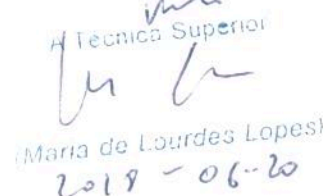 A Técnica Superior
(Maria de Lourdes Lopes)
2018-06-20